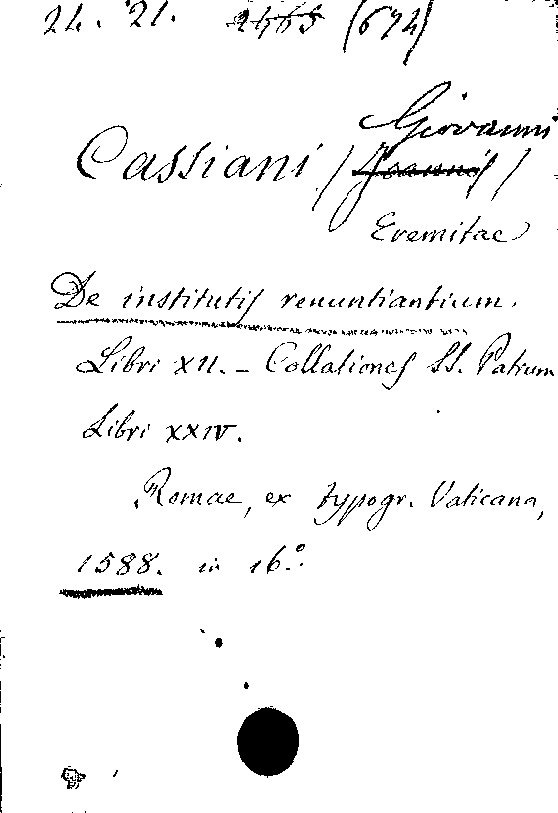 21. 21. 2465 (674)
Giovanni
Cassiani / Joannis /
Eremitae
De institutis renuntiantium.
Libri XII. – Collationes SS. Patrum
Libri XXIV.
Romae, ex typogr. Vaticana,
1588. in 16.°